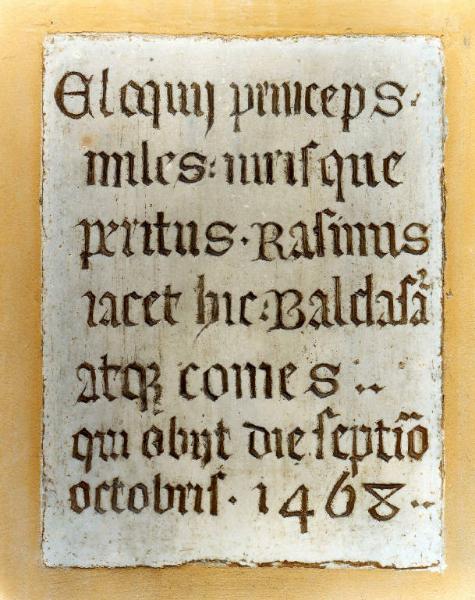 Eloquij princeps·
miles: iurisque
peritus · Rasinus
iacet hic: Baldasā
atqꝫ comes ··
qui obijt die septīo
octobris · 1468 ··